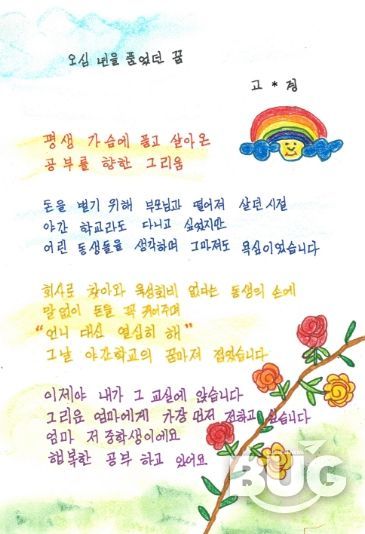 오십 년을 품었던 꿈
고 * 정
평생 가슴에 품고 살아온
공부를 향한 그리움
돈을 벌기 위해 부모님과 떨어져 살던 시절
야간 학교라도 다니고 싶었지만
어린 동생들을 생각하며 그마저도 욕심이었습니다
회사로 찾아와 육성회비 없다는 동생의 손에
말없이 돈을 꼭 쥐어주며
"언니 대신 열심히 해"
그날 야간학교의 꿈마저 접었습니다
이제야 내가 그 교실에 앉습니다
그리운 엄마에게 가장 먼저 전하고 싶습니다
엄마 저 중학생이에요
행복한 공부 하고 있어요
BUG